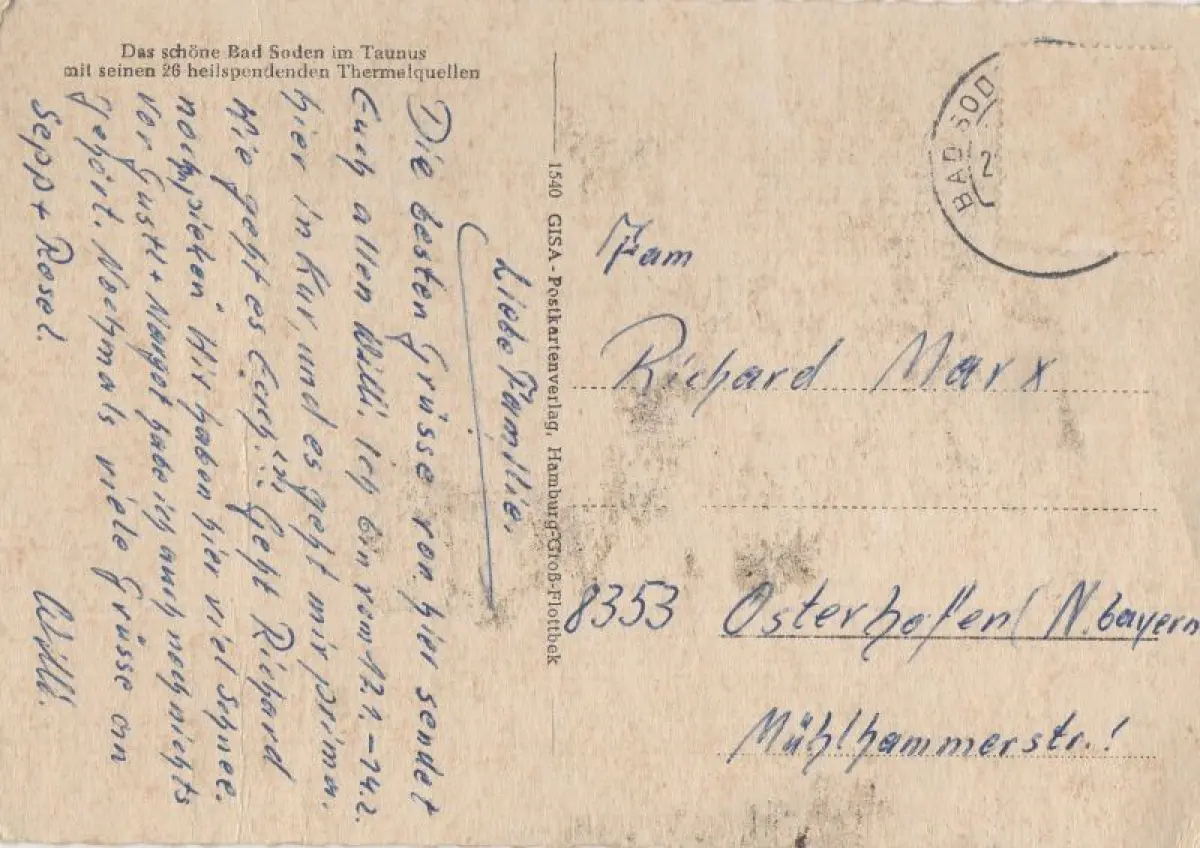 Das schöne Bad Soden im Taunus
mit seinen 26 heilspendenden Thermalquellen
Liebe Familie.
Die besten Grüsse von hier sendet
Euch allen Willi. Ich bin vom 12.1.-14.2.
hier in Kur, und es geht mir prima.
Wie geht es Euch. Geht Richard
Wir haben hier viel Schnee.
Von Gustl + Margot habe ich auch noch nichts
gehört. Nochmals viele Grüsse an
Sepp + Rosel. Willi.
1540 GISA-Postkartenverlag, Hamburg-Groß-Flottbek
BAD SOD
2
Fam
Richard Marx
8353 Osterhofen/N.bayern
Mühlhammerstr.!